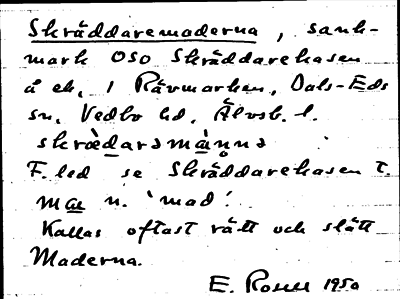 Skräddaremaderna, sank-
mark OSO Skräddarekasen
å ek. i Rävmarken, Dals-Eds
sn, Vedbo hd, Älvsb. l.
skrædarəmànnə
F. led se Skräddarekasen t.
mau n. 'mad'.
Kallas oftast rätt och slätt
Maderna.
E. Rosell 1950